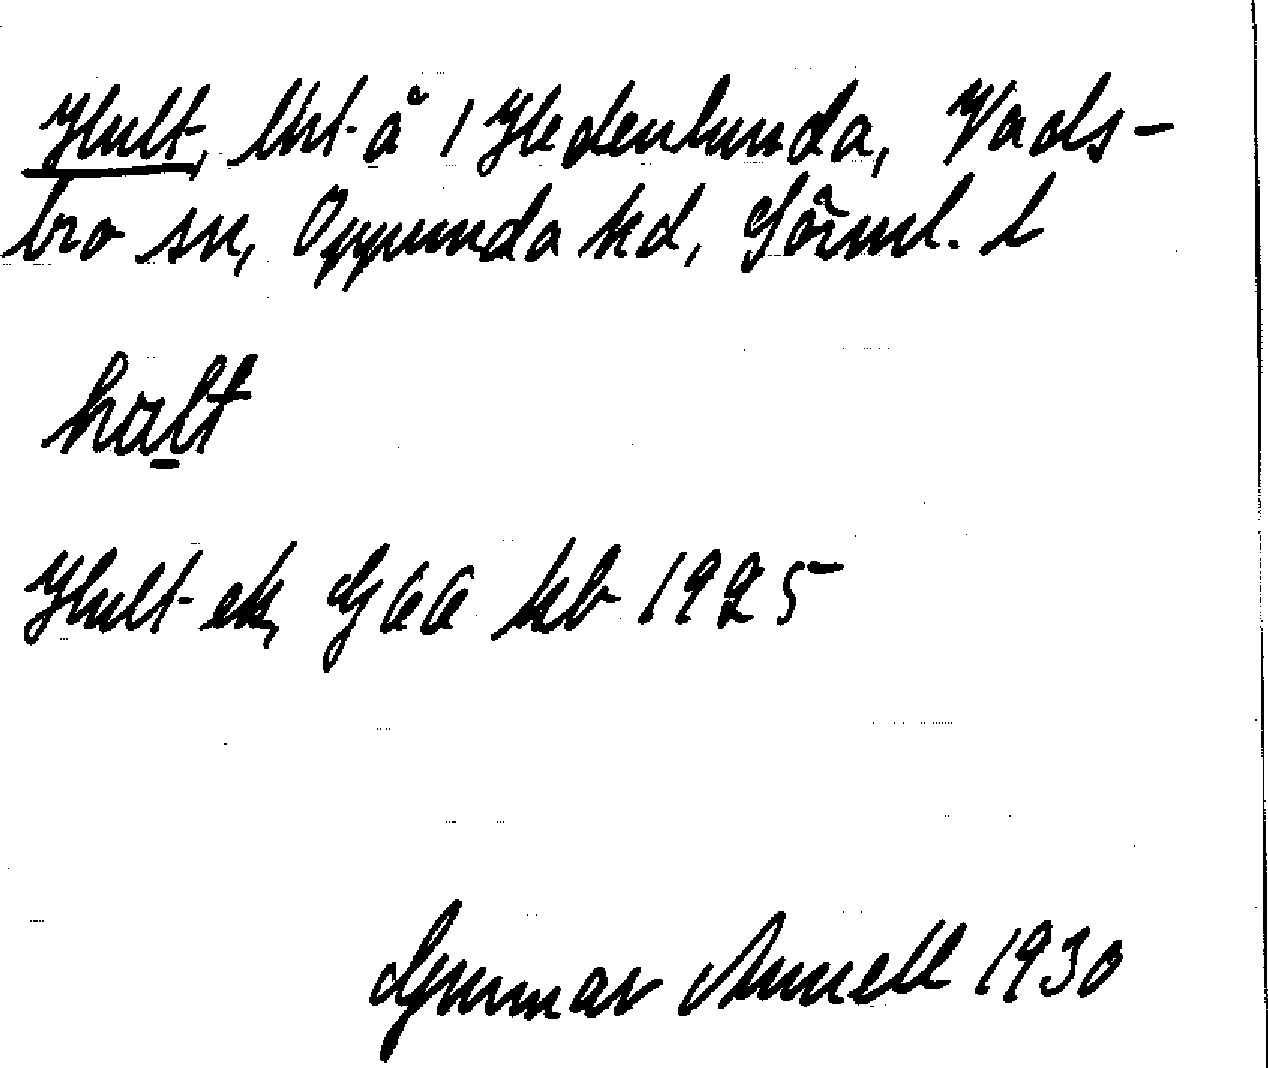 Hult, lht å 1 Hedenlunda, Vads-
bro sn, Oppunda hd, Sörml. l
hult
Hult ek, G 66 kb 1925
Gunnar Annell 1930